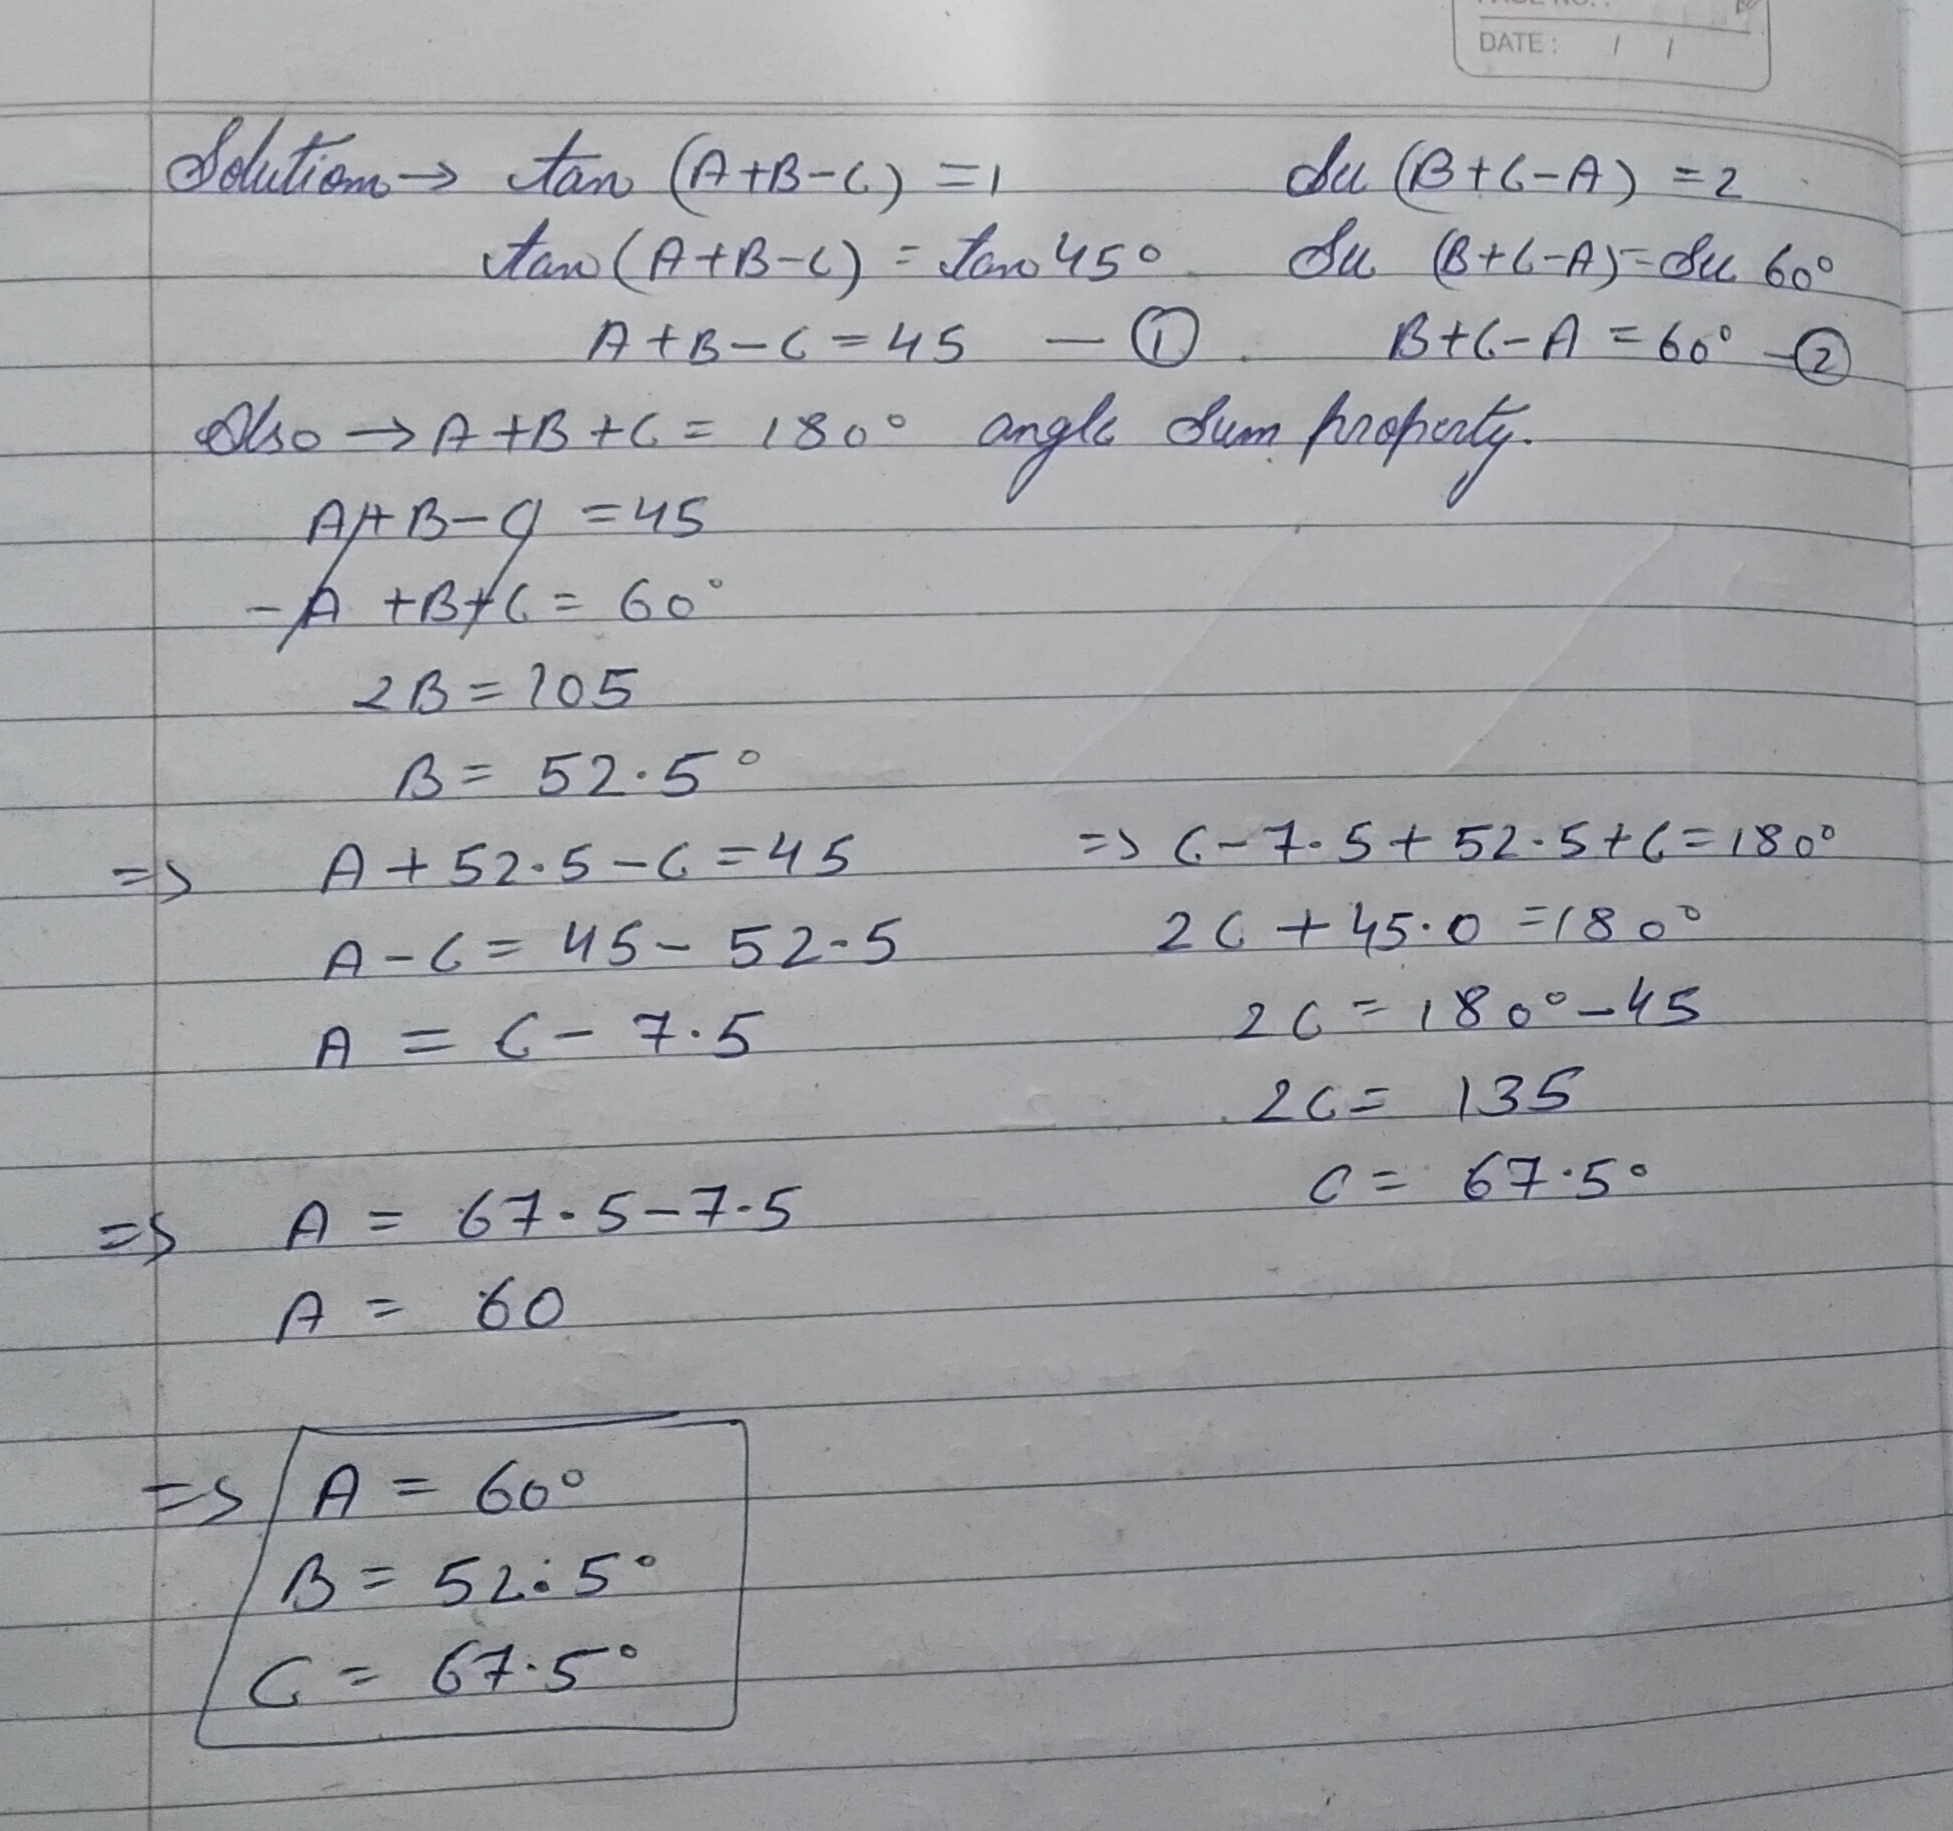 DATE: / /
Solution → tan (A+B-C) = 1 Sec (B+C-A) = 2
tan (A+B-C) = tan 45° Sec (B+C-A) = Sec 60°
A+B-C = 45 — ① B+C-A = 60° - ②
Also → A+B+C = 180° angle sum property.
A+B-C = 45
-A+B+C = 60°
2B = 105
B = 52.5°
=> A+52.5-C = 45 => C-7.5+52.5+C = 180°
A-C = 45-52.5 2C+45.0 = 180°
A = C-7.5 2C = 180°-45
2C = 135
C = 67.5°
=> A = 67.5-7.5
A = 60
=> A = 60°
B = 52.5°
C = 67.5°